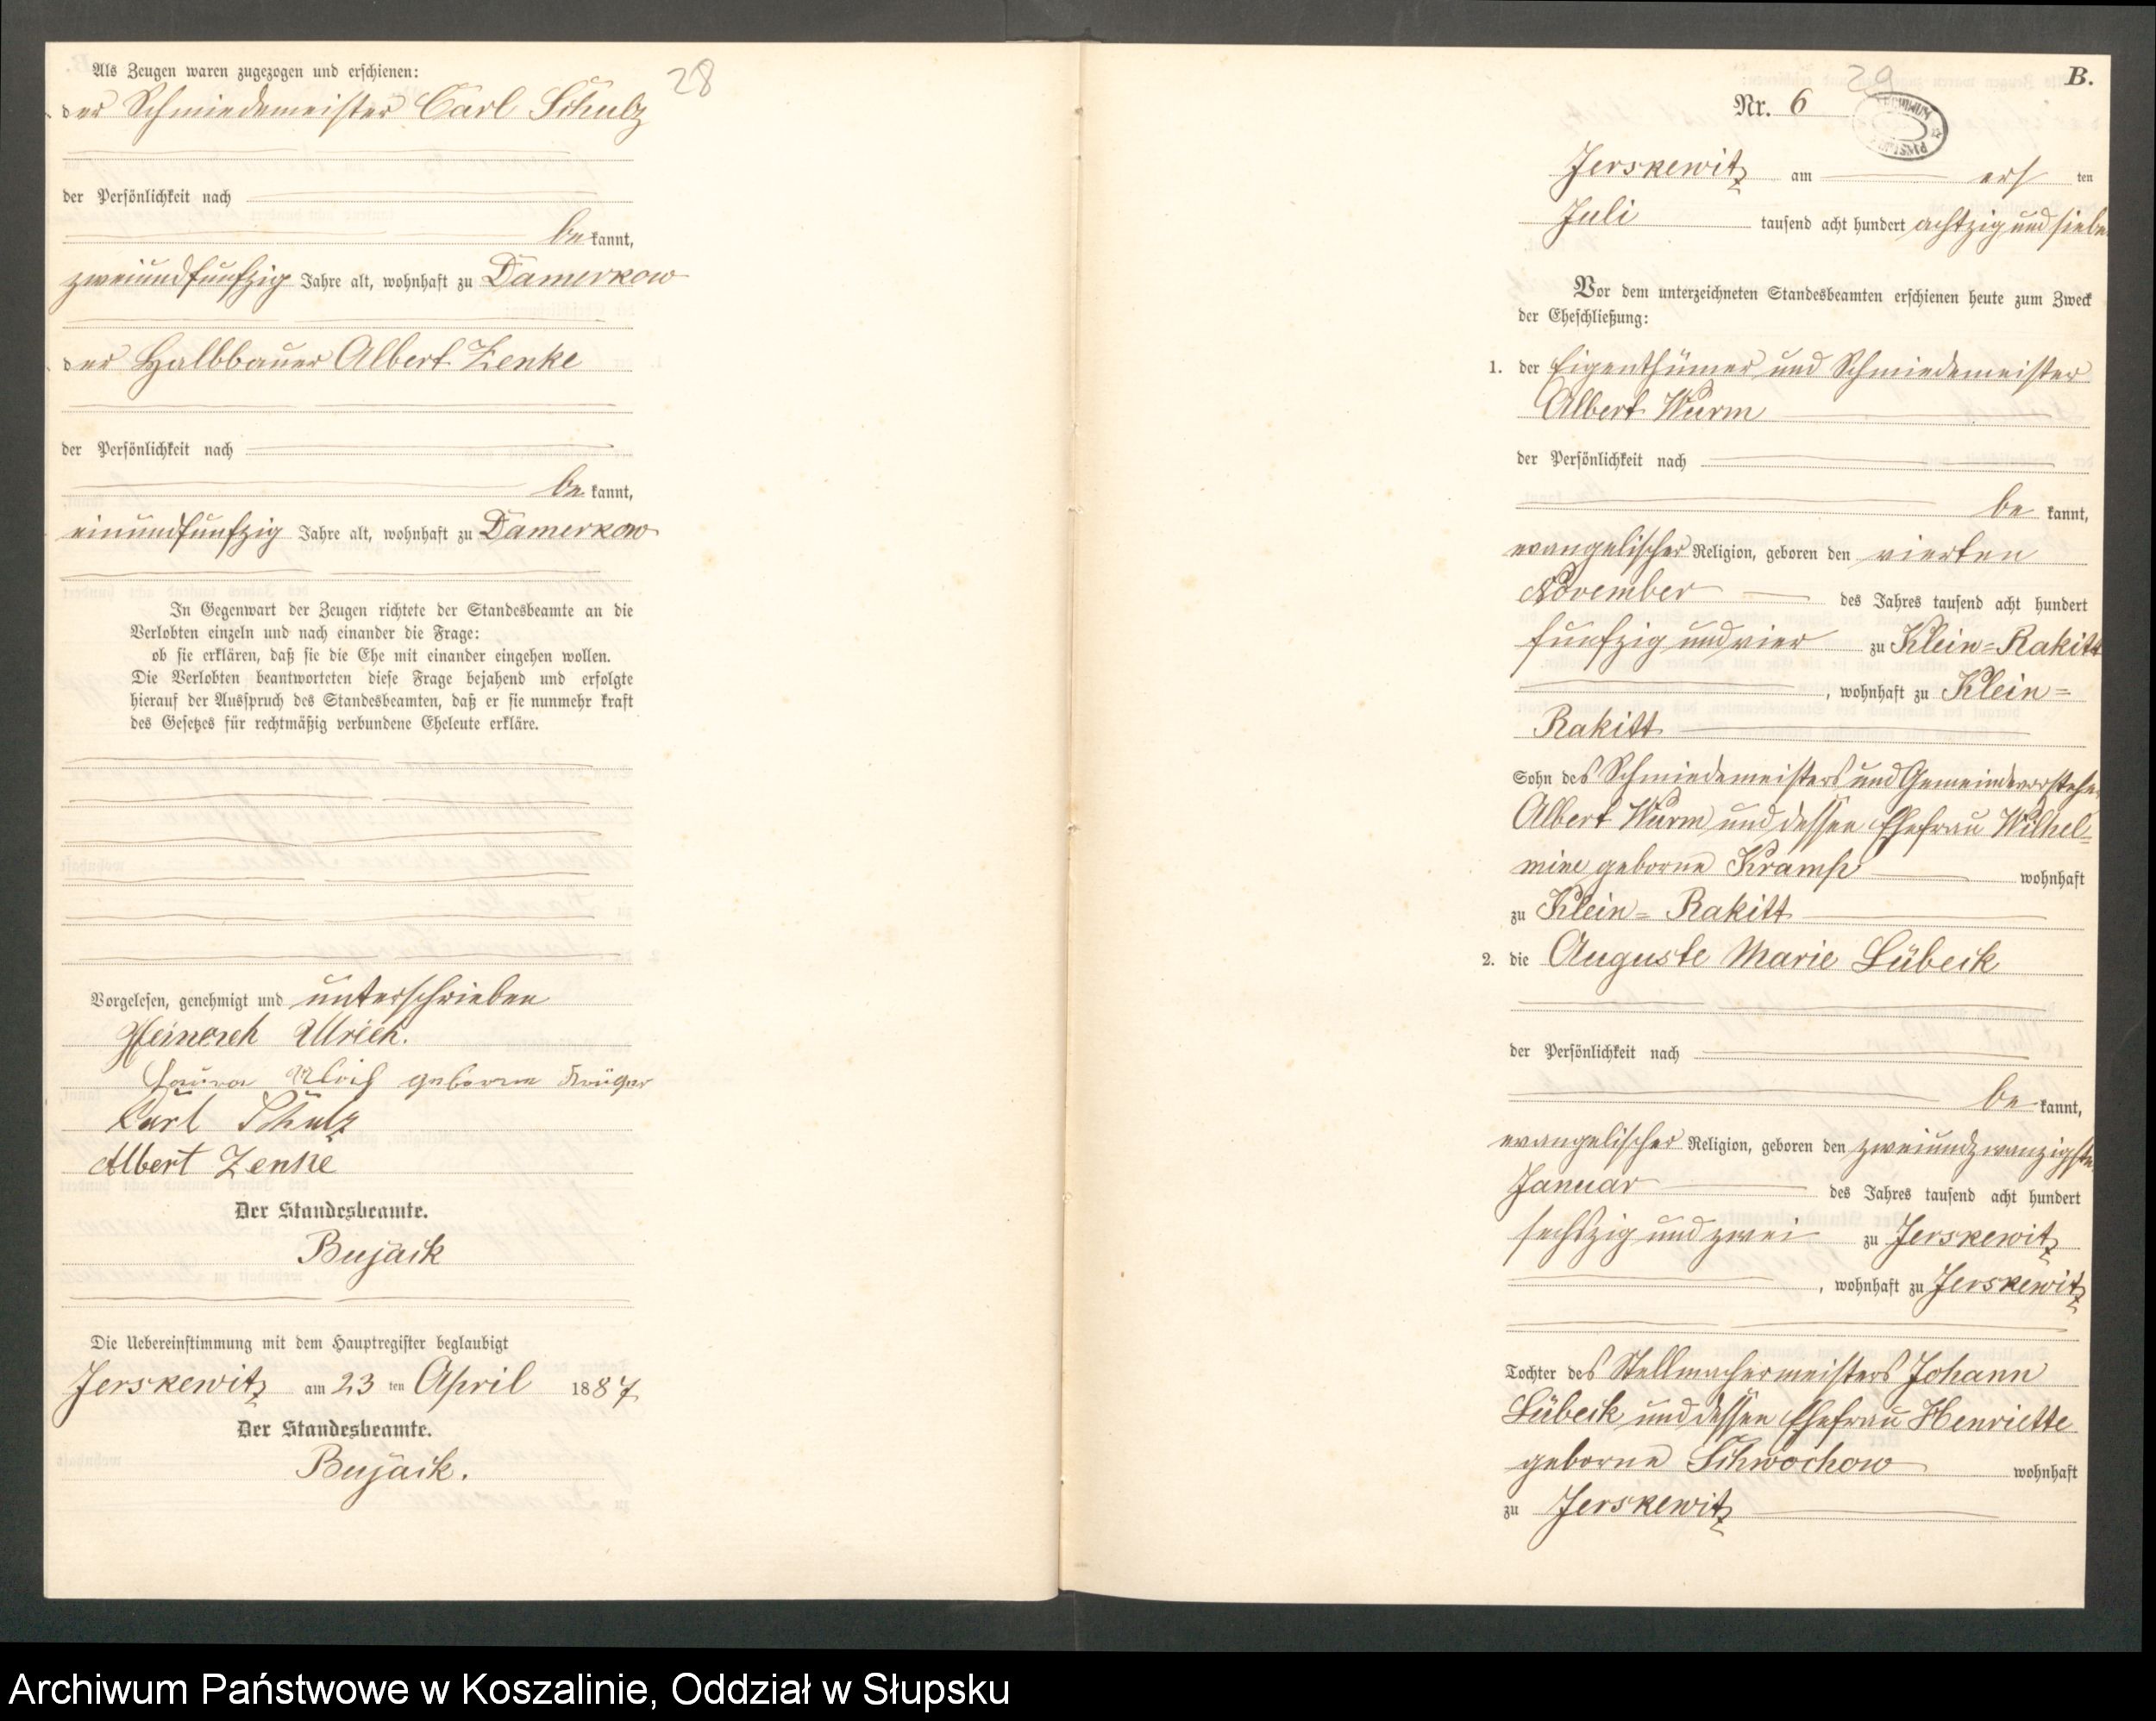 Als Zeugen waren zugezogen und erschienen:
28
der Schmiedemeister Carl Schulz
der Persönlichkeit nach
be kannt,
zweiundfunfzig Jahre alt, wohnhaft zu Damerkow
der Halbbauer Albert Zenke
der Persönlichkeit nach
be kannt,
einundfunfzig Jahre alt, wohnhaft zu Damerkow
In Gegenwart der Zeugen richtete der Standesbeamte an die
Verlobten einzeln und nach einander die Frage:
ob sie erklären, daß sie die Ehe mit einander eingehen wollen.
Die Verlobten beantworteten diese Frage bejahend und erfolgte
hierauf der Ausspruch des Standesbeamten, daß er sie nunmehr kraft
des Gesetzes für rechtmäßig verbundene Eheleute erkläre.
Vorgelesen, genehmigt und unterschrieben
Heinrich Ullrich.
Laura Ulrich geborene Krüger
Carl Schulz
Albert Zenke
Der Standesbeamte.
Bujack
Die Uebereinstimmung mit dem Hauptregister beglaubigt
Jerskewitz am 23 ten April 1887
Der Standesbeamte.
Bujack.
29
B.
Nr. 6
ARCHIWUM
Jerskewitz am ers ten
Juli tausend acht hundert achtzig und siebe
Vor dem unterzeichneten Standesbeamten erschienen heute zum Zweck
der Eheschließung:
1. der Eigenthümer und Schmiedemeister
Albert Wurm
der Persönlichkeit nach
be kannt,
evangelischer Religion, geboren den vierten
November des Jahres tausend acht hundert
funfzig und vier zu Klein=Rakitt
, wohnhaft zu Klein=
Rakitt
Sohn des Schmiedemeisters und Gemeindevorstehe
Albert Wurm und dessen Ehefrau Wilhel=
mine geborne Kramp wohnhaft
zu Klein=Rakitt
2. die Auguste Marie Lübeck
der Persönlichkeit nach
be kannt,
evangelischer Religion, geboren den zweiundzwanzigste
Januar des Jahres tausend acht hundert
sechszig und zwei zu Jerskewitz
, wohnhaft zu Jerskewitz
Tochter des Stellmachermeisters Johann
Lübeck und dessen Ehefrau Henriette
geborne Schwochow wohnhaft
zu Jerskewitz
Archiwum Państwowe w Koszalinie, Oddział w Słupsku